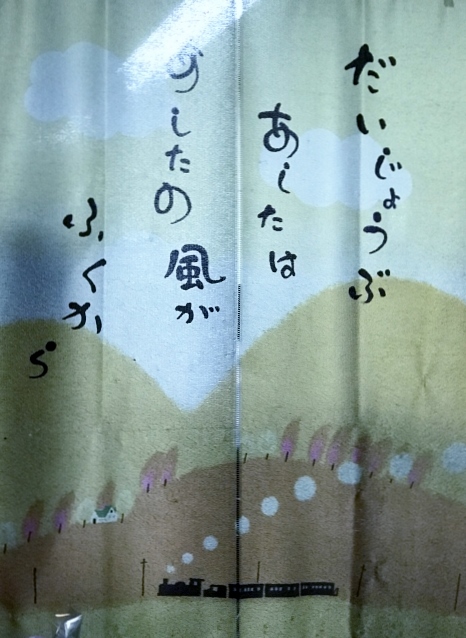 だいじょうぶ
あしたは
あしたの風が
ふくから